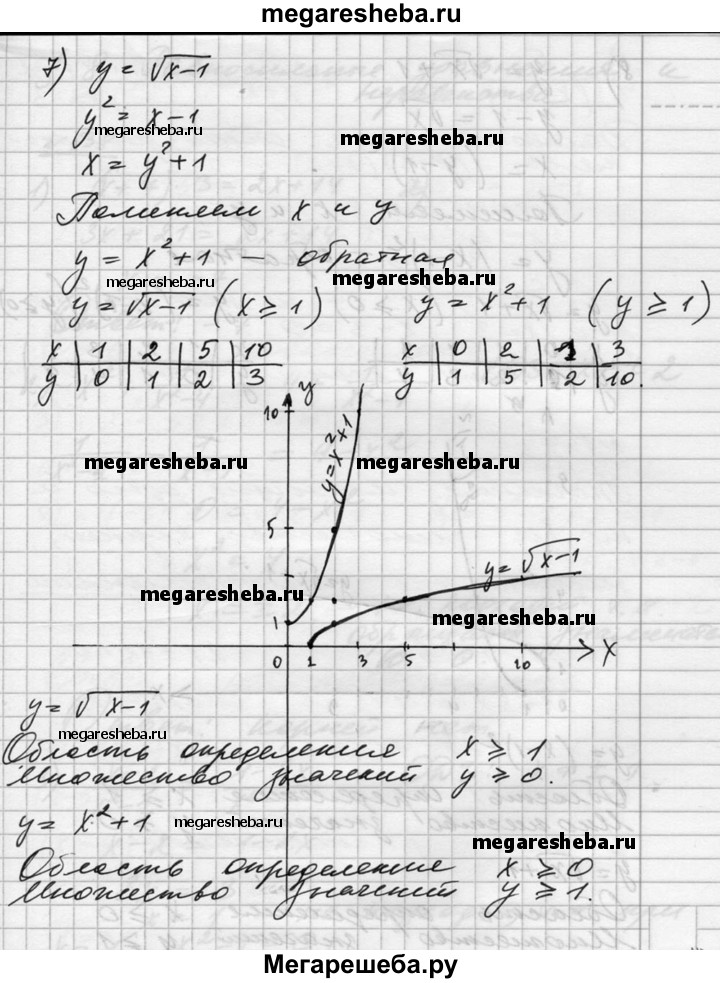 megaresheba.ru
7) y = √x-1
y² = x-1
megaresheba.ru
megaresheba.ru
x = y²+1
Поменяем x и y
y = x²+1 — обратная
megaresheba.ru
megaresheba.ru
y = √x-1 (x ≥ 1) y = x²+1 (y ≥ 1)
x | 1 | 2 | 5 | 10 x | 0 | 2 | 1 | 3
y | 0 | 1 | 2 | 3 y | 1 | 5 | 2 | 10.
10 y
y=x²+1
megaresheba.ru
megaresheba.ru
5
y = √x-1
megaresheba.ru
megaresheba.ru
1
0 1 3 5 10 X
y = √x-1
megaresheba.ru
Область определения x ≥ 1
Множество значений y ≥ 0.
y = x²+1
megaresheba.ru
megaresheba.ru
Область определение x ≥ 0
Множество значений y ≥ 1.
Мегарешеба.ру